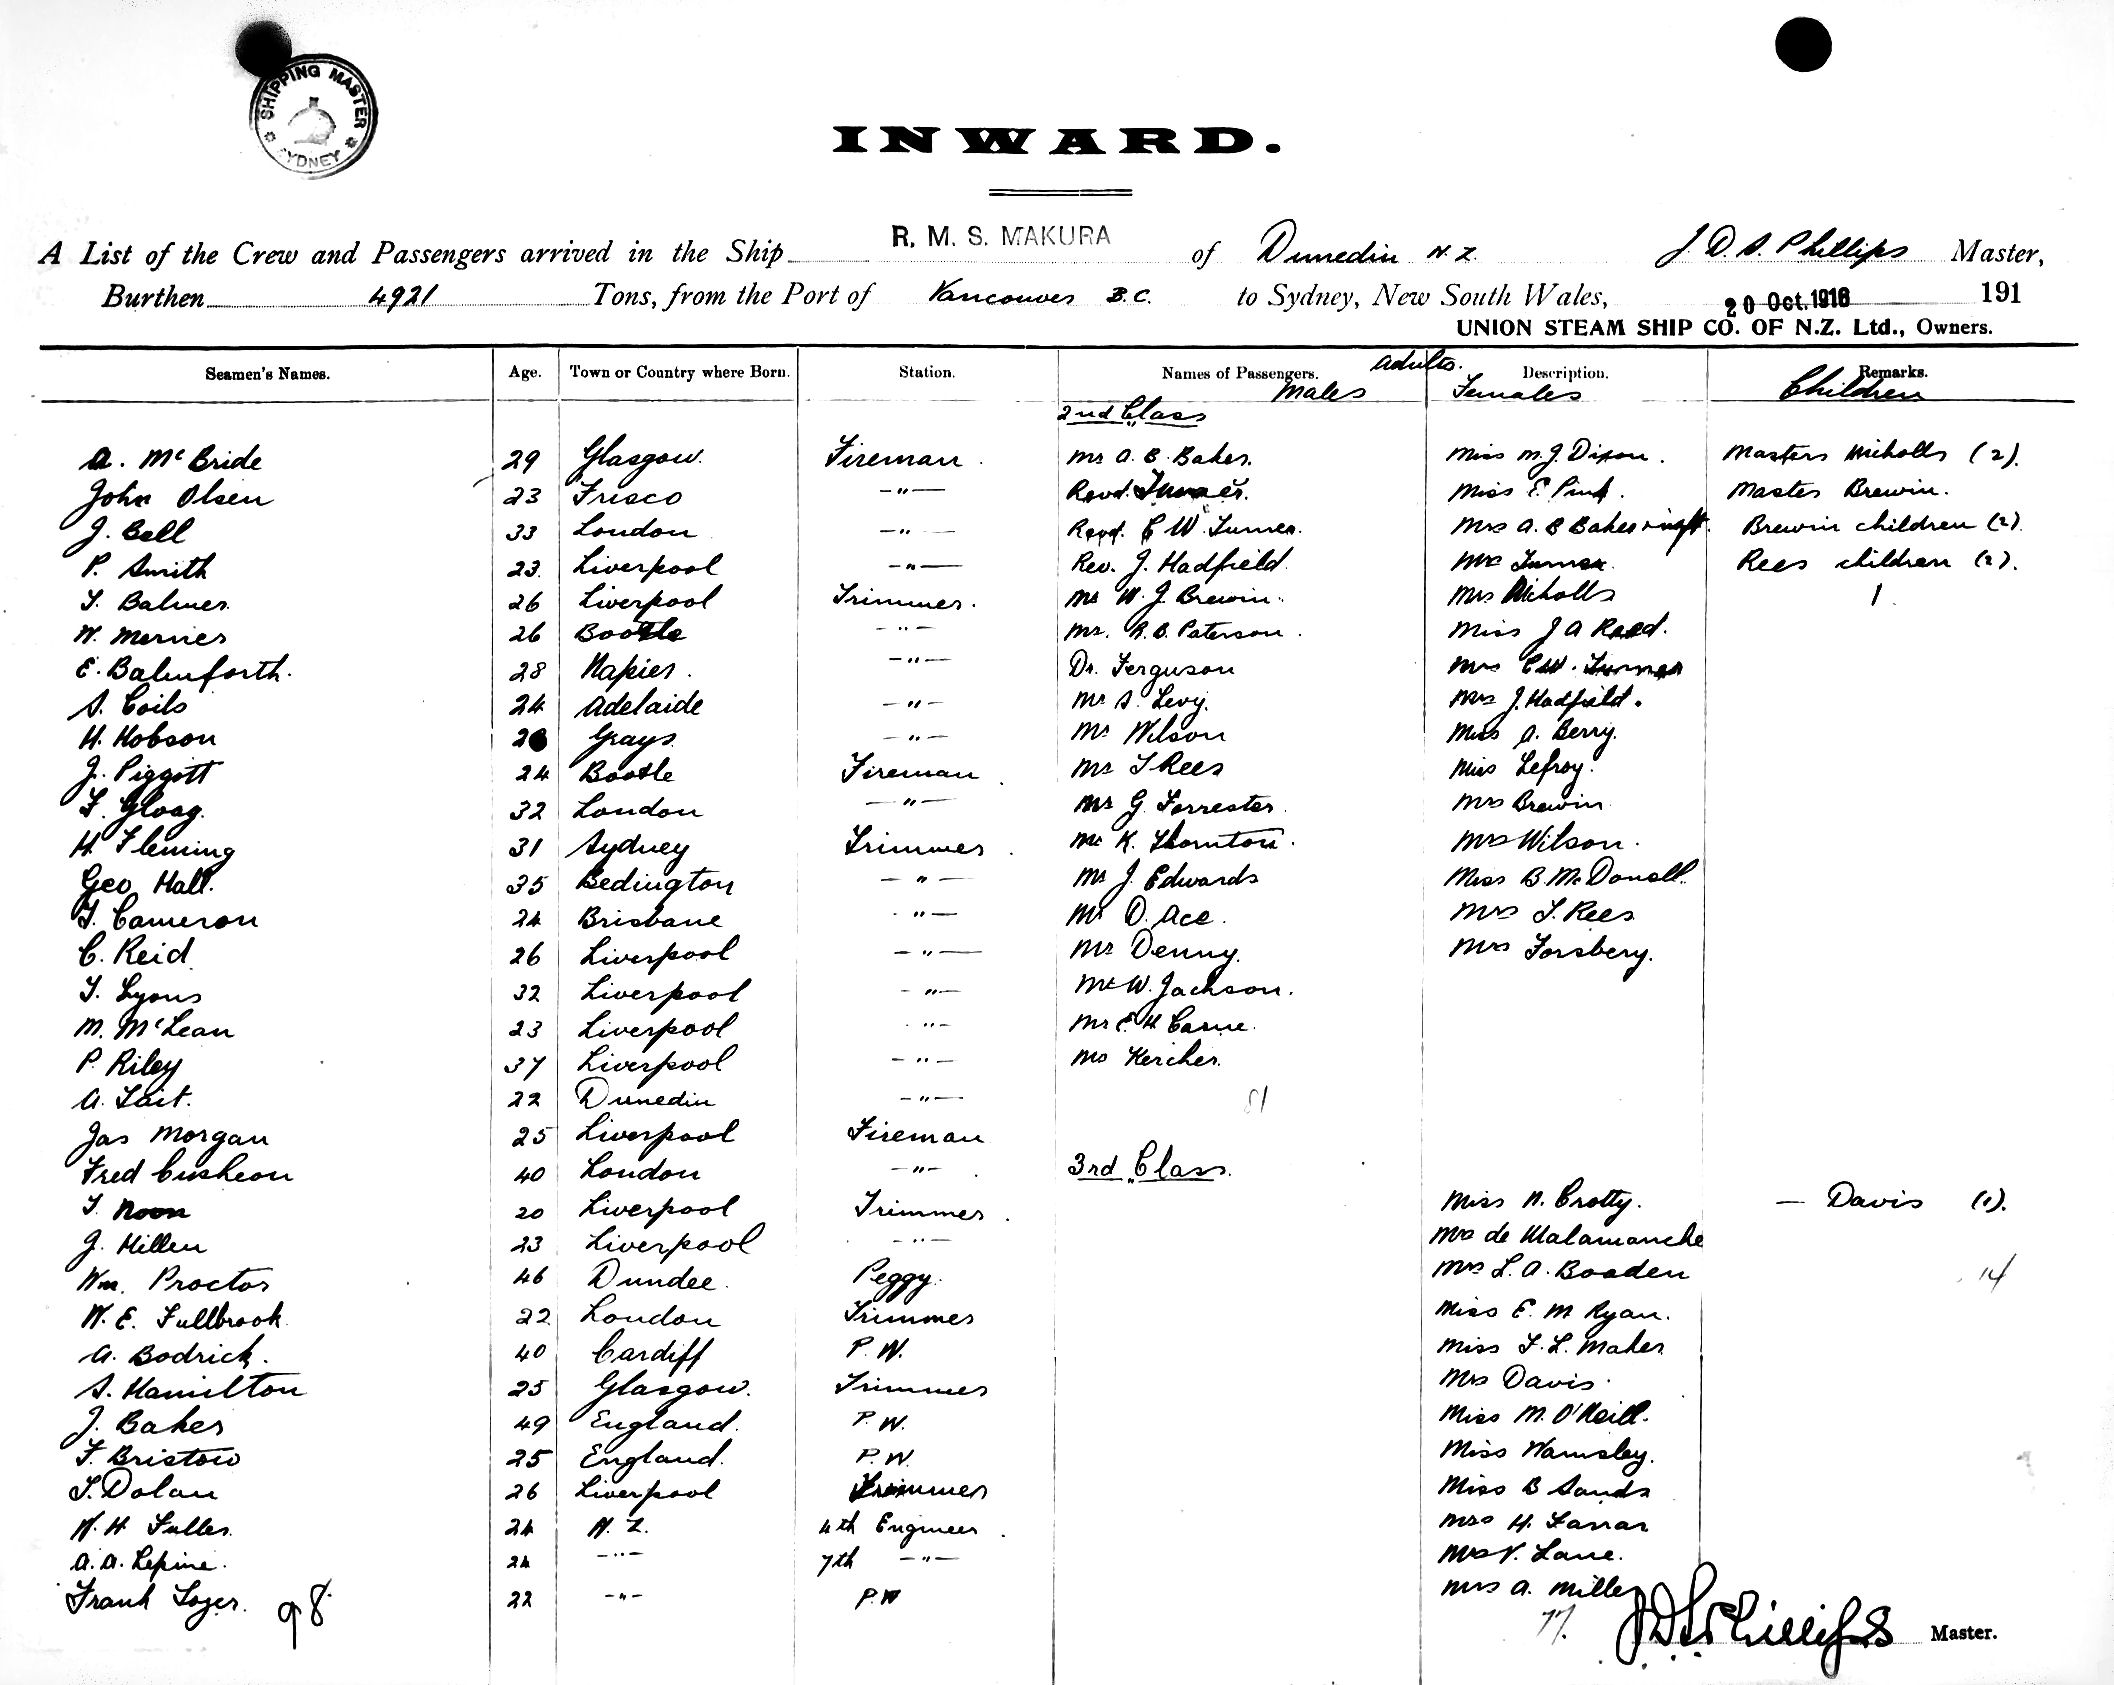 SHIPPING MASTER
SYDNEY
INWARD.
A List of the Crew and Passengers arrived in the Ship R. M. S. MAKURA of Dunedin N.Z. J. D. S. Phillips Master,
Burthen 4921 Tons, from the Port of Vancouver B.C. to Sydney, New South Wales, 20 Oct. 1916 191
UNION STEAM SHIP CO. OF N.Z. Ltd., Owners.
Seamen's Names. Age. Town or Country where Born. Station. Names of Passengers. Adults. Description. Remarks.
Males Females Children
2nd Class
A. McBride 29 Glasgow. Fireman. Mr A. B. Baker. Miss M. J. Dixon. Masters Nicholls (2).
John Olsen 23 Frisco -"- Revd. Turner. Miss E. Pink. Master Brewin.
J. Bell 33 London -"- Revd. C W. Turner. Mrs A. B Baker Brewin children (2).
P. Smith 23. Liverpool -"- Rev. J. Hadfield. Mrs Turner. Rees children (2).
T. Balmer. 26 Liverpool Trimmer. Mr W. J. Brewin. Mrs Nicholls 1.
W. Mernies 26 Bootle -"- Mr. R. B. Paterson. Miss J A Reed.
E. Balmforth. 28 Napier. -"- Dr. Ferguson Mrs C W. Turner
S. Coils 24 Adelaide -"- Mr S. Levy. Mrs J. Hadfield.
H. Hobson Grays. -"- Mr Wilson Miss A. Berry.
J. Piggott 24 Bootle Fireman. Mr T Rees Miss Lefroy.
F. Gloag. 32 London -"- Mr G. Forrester. Mrs Brewin
H. Fleming 31 Sydney Trimmer. Mr K. Thornton. Mrs Wilson.
Geo Hall. 35 Bedington -"- Mr J. Edwards Miss B McDonell.
T. Cameron 24 Brisbane -"- Mr D. Ace. Mrs T. Rees
C. Reid 26 Liverpool -"- Mr Denny. Mrs Forsbery.
T. Lyons 32 Liverpool -"- Mr W. Jackson.
M. McLean 23 Liverpool -"- Mr E. H Carne.
P. Riley 37 Liverpool -"- Mr Kercher.
A. Tait. 22 Dunedin -"- 81
Jas Morgan 25 Liverpool Fireman
Fred Cusheon 40 London -"- 3rd Class.
T. Noon 20 Liverpool Trimmer. Miss N. Crotty. — Davis (1).
J. Hillen 23 Liverpool -"- Mrs de Malamanche
Wm. Proctor 46 Dundee. Peggy. Mrs L. A. Boaden 14
W. E. Fullbrook 22 London Trimmer Miss E. M Ryan.
A. Bodrick. 40 Cardiff P. W. Miss F. L. Maher
S. Hamilton 25 Glasgow. Trimmer Mrs Davis.
J. Baker 49 England. P. W. Miss M. O'Neill.
F. Bristow 25 England. P. W. Miss Wamsley.
T. Dolan 26 Liverpool Trimmer Miss B Sands
W. H Fuller. 24 N. Z. 4th Engineer. Mrs H. Farrar
A. A. Lepine. 24 -"- 7th -"- Mrs V. Lane.
Frank Soger. 22 -"- P.W Mrs A. Miller
98 77. J D S Phillips Master.